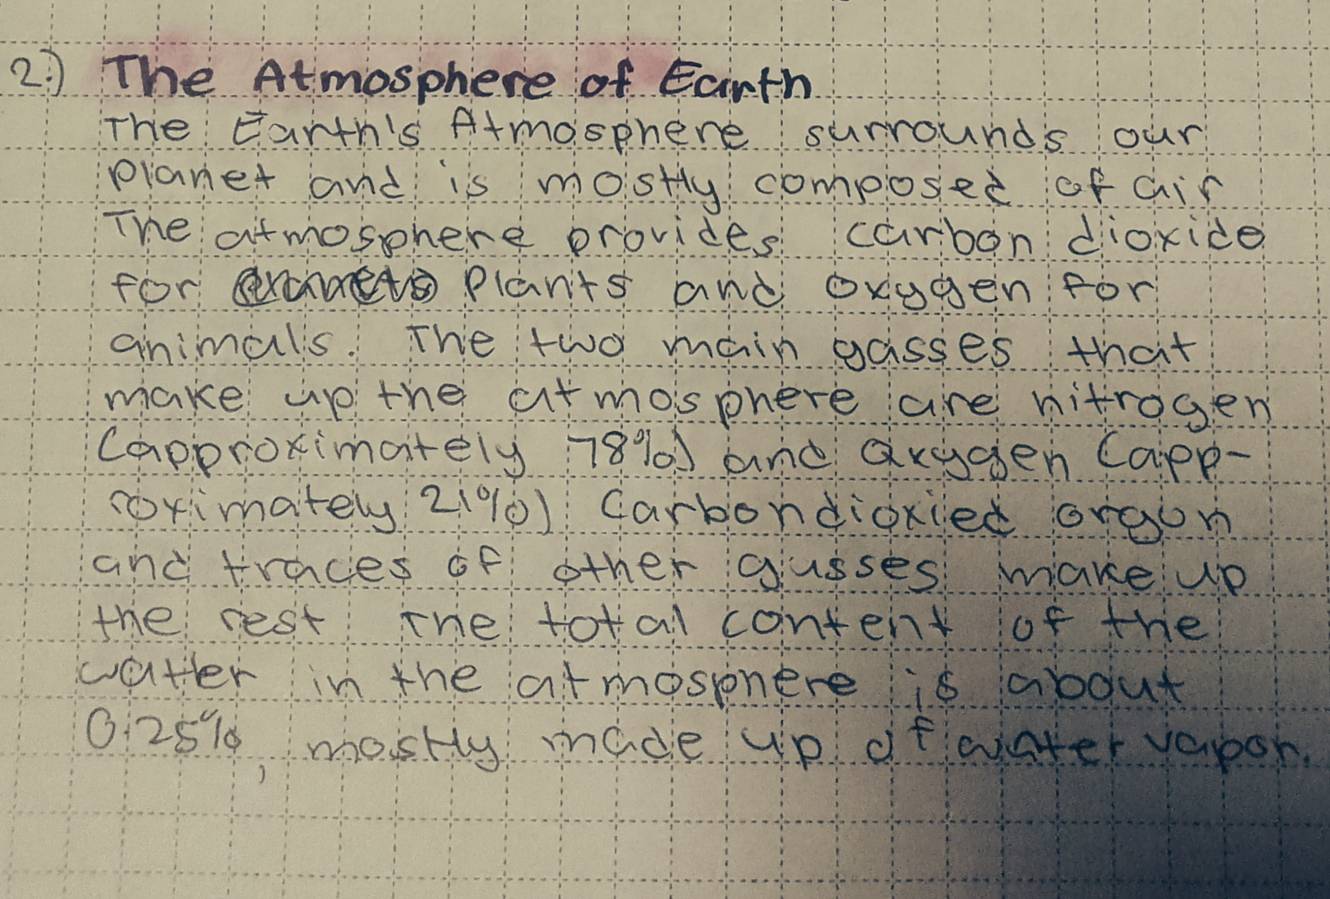 2.) The Atmosphere of Earth
The Earth's Atmosphere surrounds our
planet and is mostly composed of air
The atmosphere provides carbon dioxide
for plants and oxygen for
animals. The two main gasses that
make up the atmosphere are nitrogen
(approximately 78%) and oxygen (app-
roximately 21%) Carbondioxied orgon
and traces of other gasses make up
the rest The total content of the
watter in the atmosphere is about
0.25%, mostly made up of water vapor.